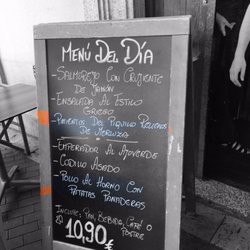 MENÚ DEL DÍA
- SALMOREJO CON CRUJIENTE
DE JAMÓN
- ENSALADA AL ESTILO
GRIEGO
- PIMIENTOS DEL PIQUILLO RELLENOS
DE MERLUZA
- EMPERADOR AL AJOVERDE
- CODILLO ASADO
- POLLO AL HORNO CON
PATATAS PANADERAS
INCLUYE: PAN, BEBIDA, CAFÉ O
POSTRE
10,90€